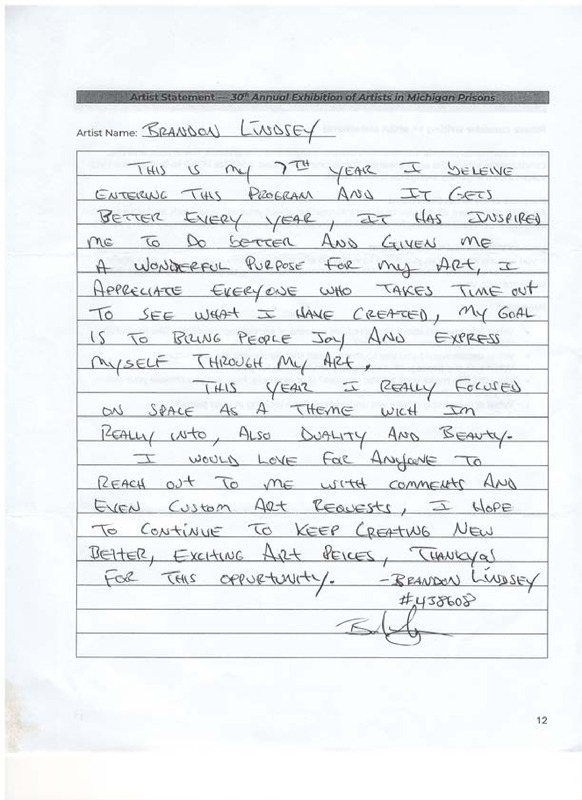 Artist Statement — 30th Annual Exhibition of Artists in Michigan Prisons
Artist Name: BRANDON LINDSEY
THIS IS MY 7TH YEAR I BELEIVE
ENTERING THIS PROGRAM AND IT GETS
BETTER EVERY YEAR, IT HAS INSPIRED
ME TO DO BETTER AND GIVEN ME
A WONDERFUL PURPOSE FOR MY ART, I
APPRECIATE EVERYONE WHO TAKES TIME OUT
TO SEE WHAT I HAVE CREATED, MY GOAL
IS TO BRING PEOPLE JOY AND EXPRESS
MYSELF THROUGH MY ART.
THIS YEAR I REALLY FOCUSED
ON SPACE AS A THEME WICH IM
REALLY INTO, ALSO DUALITY AND BEAUTY.
I WOULD LOVE FOR ANYONE TO
REACH OUT TO ME WITH COMMENTS AND
EVEN CUSTOM ART REQUESTS, I HOPE
TO CONTINUE TO KEEP CREATING NEW
BETTER, EXCITING ART PEICES, THANKYOU
FOR THIS OPPURTUNITY. -BRANDON LINDSEY
#438608
12